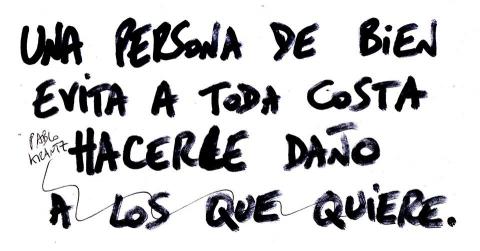 UNA PERSONA DE BiEN
EVITA A TODA COSTA
HACERLE DAÑO
A LOS QUE QUiERE.
PABLO
KRANTZ